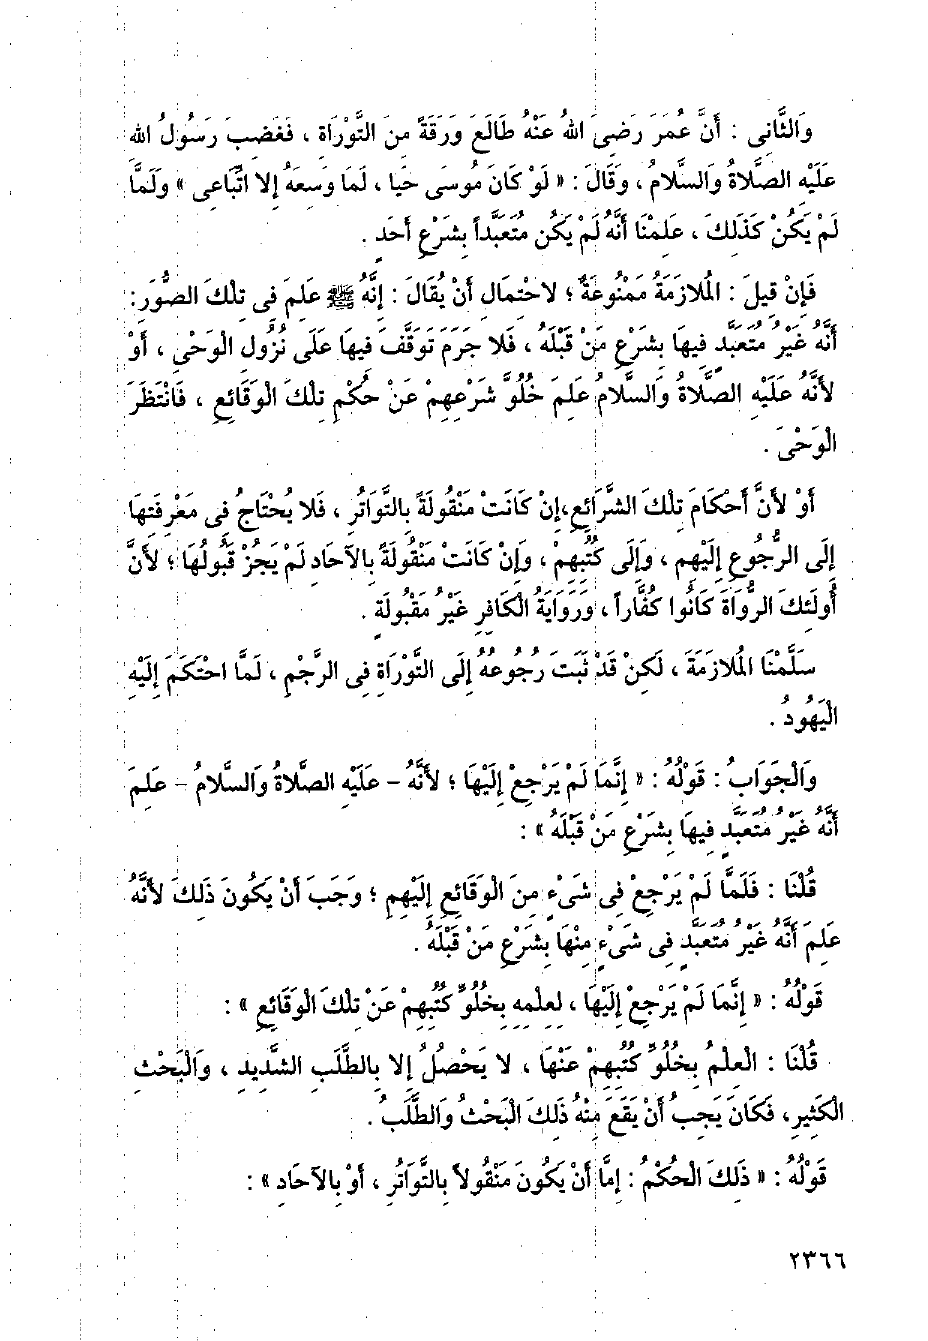 وَالثَّانِى : أَنَّ عُمَرَ رَضِىَ اللهُ عَنْهُ طَالَعَ وَرَقَةً مِنَ التَّوْرَاةِ ، فَغَضِبَ رَسُولُ اللهِ
عَلَيْهِ الصَّلاةُ وَالسَّلامُ ، وَقَالَ : « لَوْ كَانَ مُوسَى حَيا ، لَمَا وَسِعَهُ إِلا اتِّبَاعِى » وَلَمَّا
لَمْ يَكُنْ كَذَلِكَ ، عَلِمْنَا أَنَّهُ لَمْ يَكُن مُتَعَبَّداً بِشَرْعِ أَحَدٍ .
فَإِنْ قِيلَ : الْمُلازَمَةُ مَمْنُوعَةٌ ؛ لاحْتِمَالِ أَنْ يُقَالَ : إِنَّهُ ﷺ عَلِمَ فِى تِلْكَ الصُّوَرِ :
أَنَّهُ غَيْرُ مُتَعَبَّدٍ فِيهَا بِشَرْعِ مَنْ قَبْلَهُ ، فَلا جَرَمَ تَوَقَّفَ فِيهَا عَلَى نُزُولِ الْوَحْىِ ، أَوْ
لأَنَّهُ عَلَيْهِ الصَّلاةُ وَالسَّلامُ عَلِمَ خُلُوَّ شَرْعِهِمْ عَنْ حُكْمِ تِلْكَ الْوَقَائِعِ ، فَانْتَظَرَ
الْوَحْىَ .
أَوْ لأَنَّ أَحْكَامَ تِلْكَ الشَّرَائِعِ،إِنْ كَانَتْ مَنْقُولَةً بِالتَّوَاتُرِ ، فَلا يُحْتَاجُ فِى مَعْرِفَتِهَا
إِلَى الرُّجُوعِ إِلَيْهِم ، وَإِلَى كُتُبِهِمْ ، وَإِنْ كَانَتْ مَنْقُولَةً بِالآحَادِ لَمْ يَجُزْ قَبُولُهَا ؛ لأَنَّ
أُولَئِكَ الرُّوَاةَ كَانُوا كُفَّاراً ، وَرِوَايَةُ الْكَافِرِ غَيْرُ مَقْبُولَةٍ .
سَلَّمْنَا الْمُلازَمَةَ ، لَكِنْ قَدْ ثَبَتَ رُجُوعُهُ إِلَى التَّوْرَاةِ فِى الرَّجْمِ ، لَمَّا احْتَكَمَ إِلَيْهِ
الْيَهُودُ .
وَالْجَوَابُ : قَوْلُهُ : « إِنَّمَا لَمْ يَرْجِعْ إِلَيْهَا ؛ لأَنَّهُ - عَلَيْهِ الصَّلاةُ وَالسَّلامُ - عَلِمَ
أَنَّهُ غَيْرُ مُتَعَبَّدٍ فِيهَا بِشَرْعِ مَنْ قَبْلَهُ » :
قُلْنَا : فَلَمَّا لَمْ يَرْجِعْ فِى شَىْءٍ مِنَ الْوَقَائِعِ إِلَيْهِم ؛ وَجَبَ أَنْ يَكُونَ ذَلِكَ لأَنَّهُ
عَلِمَ أَنَّهُ غَيْرُ مُتَعَبَّدٍ فِى شَىْءٍ مِنْهَا بِشَرْعِ مَنْ قَبْلَهُ .
قَوْلُهُ : « إِنَّمَا لَمْ يَرْجِعْ إِلَيْهَا ، لِعِلْمِهِ بِخُلُوِّ كُتُبِهِمْ عَنْ تِلْكَ الْوَقَائِعِ » :
قُلْنَا : الْعِلْمُ بِخُلُوِّ كُتُبِهِمْ عَنْهَا ، لا يَحْصُلُ إِلا بِالطَّلَبِ الشَّدِيدِ ، وَالْبَحْثِ
الْكَثِيرِ، فَكَانَ يَجِبُ أَنْ يَقَعَ مِنْهُ ذَلِكَ الْبَحْثُ وَالطَّلَبُ .
قَوْلُهُ : « ذَلِكَ الْحُكْمُ : إِمَّا أَنْ يَكُونَ مَنْقُولاً بِالتَّوَاتُرِ ، أَوْ بِالآحَادِ » :
٢٣٦٦